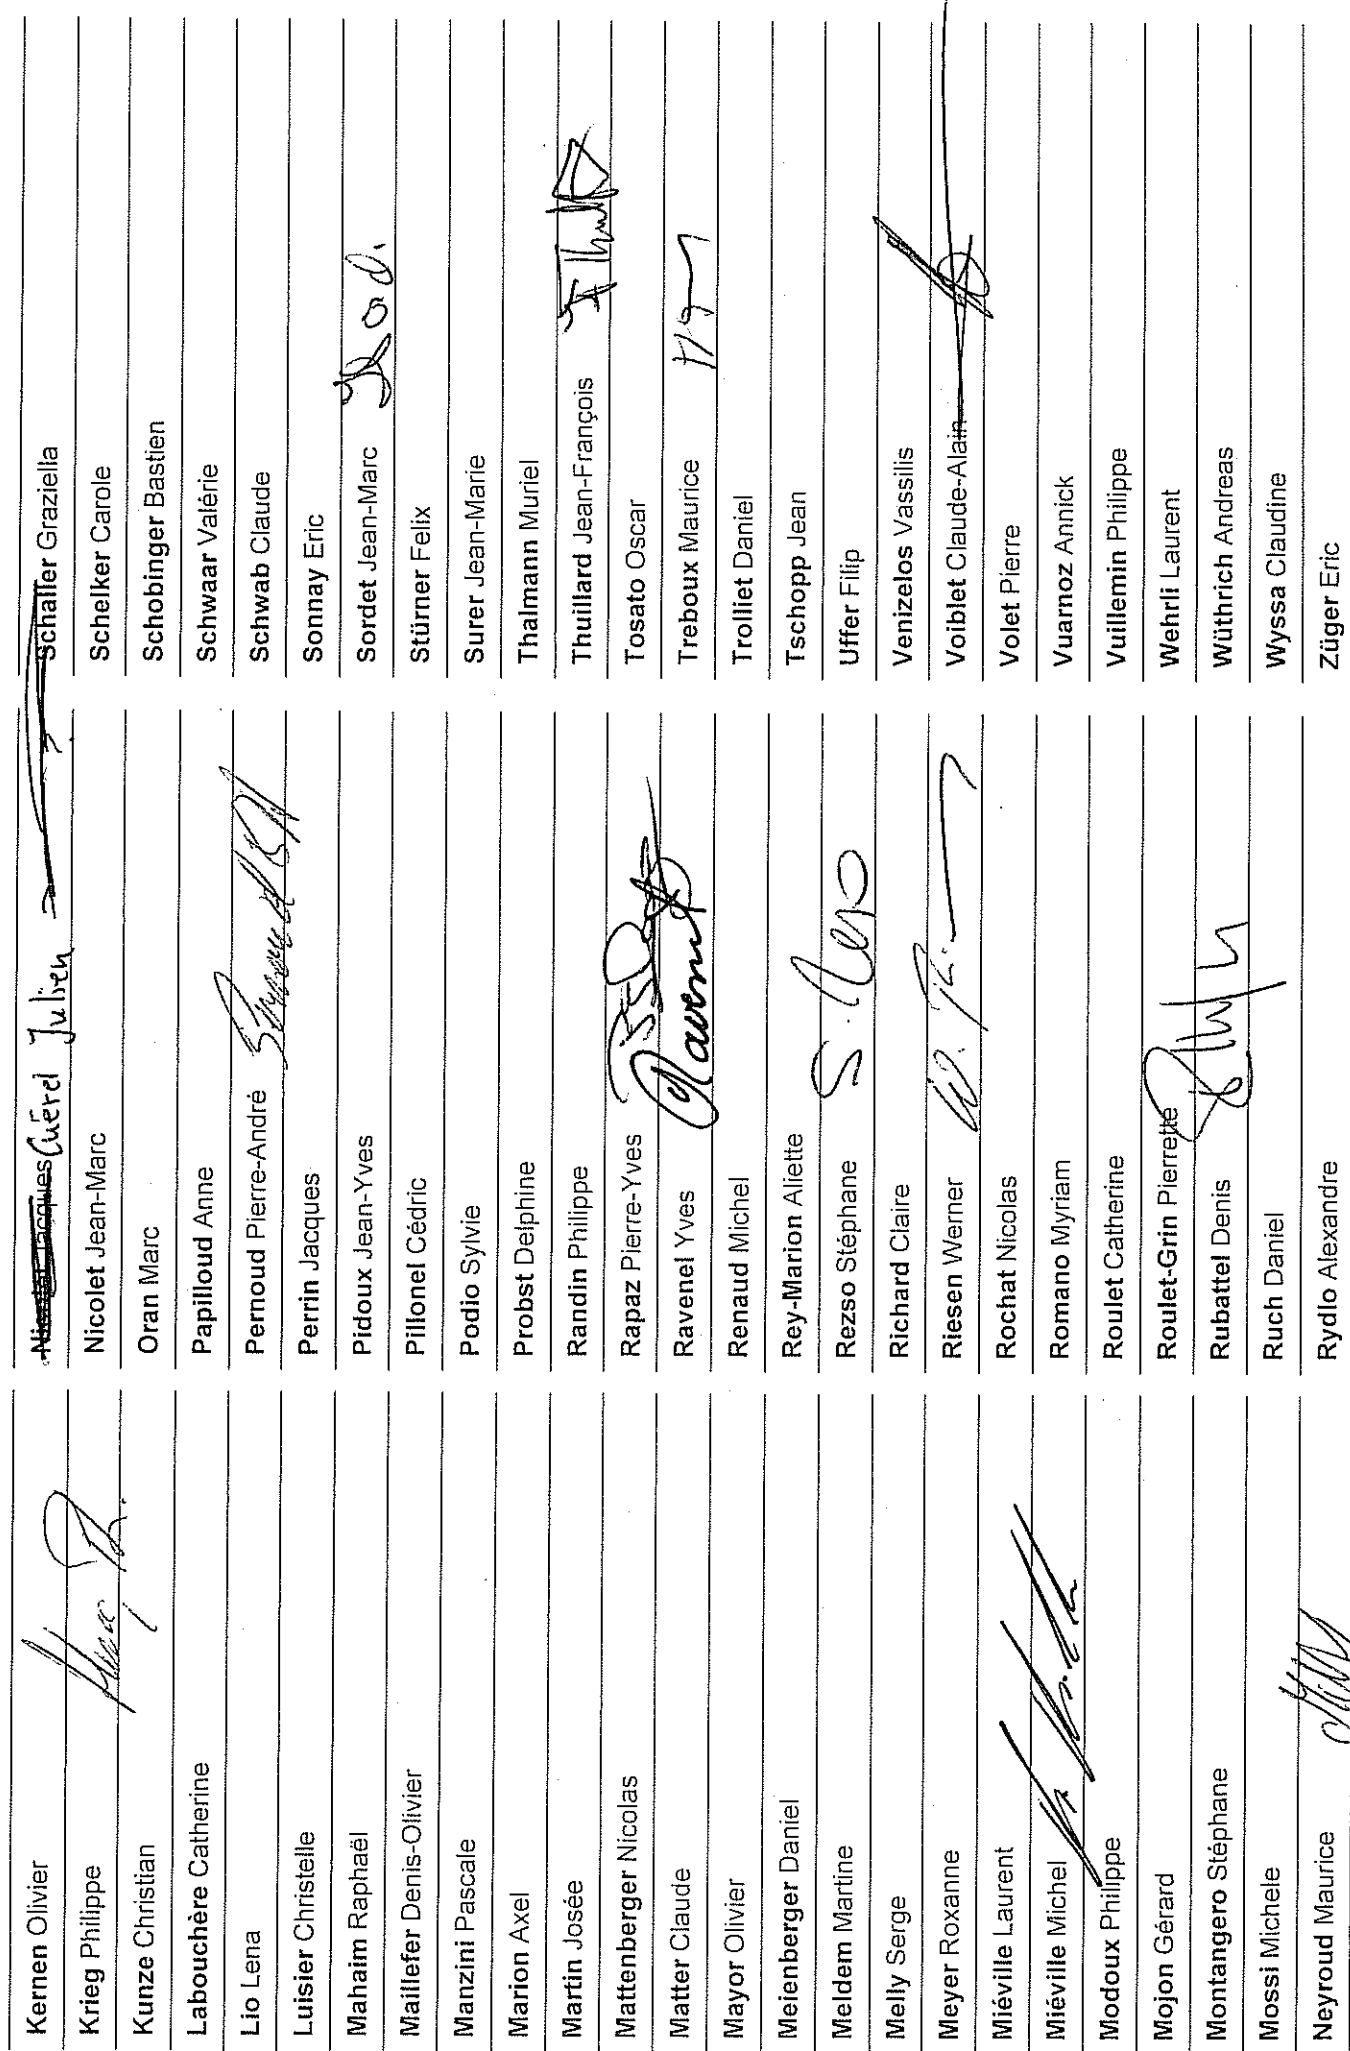 Kernen Olivier
Krieg Philippe
Kunze Christian
Labouchère Catherine
Lio Lena
Luisier Christelle
Mahaim Raphaël
Maillefer Denis-Olivier
Manzini Pascale
Marion Axel
Martin Josée
Mattenberger Nicolas
Matter Claude
Mayor Olivier
Meienberger Daniel
Meldem Martine
Melly Serge
Meyer Roxanne
Miéville Laurent
Miéville Michel
Modoux Philippe
Mojon Gérard
Montangero Stéphane
Mossi Michele
Neyroud Maurice
Jacques Cuérel Julien
Nicolet Jean-Marc
Oran Marc
Papilloud Anne
Pernoud Pierre-André
Perrin Jacques
Pidoux Jean-Yves
Pillonel Cédric
Podio Sylvie
Probst Delphine
Randin Philippe
Rapaz Pierre-Yves
Ravenel Yves Ravenel
Renaud Michel
Rey-Marion Aliette
Rezso Stéphane
Richard Claire
Riesen Werner
Rochat Nicolas
Romano Myriam
Roulet Catherine
Roulet-Grin Pierrette
Rubattel Denis
Ruch Daniel
Rydlo Alexandre
Schaller Graziella
Schelker Carole
Schobinger Bastien
Schwaar Valérie
Schwab Claude
Sonnay Eric
Sordet Jean-Marc
Stürner Felix
Surer Jean-Marie
Thalmann Muriel
Thuillard Jean-François
Tosato Oscar
Treboux Maurice
Trolliet Daniel
Tschopp Jean
Uffer Filip
Venizelos Vassilis
Voiblet Claude-Alain
Volet Pierre
Vuarnoz Annick
Vuillemin Philippe
Wehrli Laurent
Wüthrich Andreas
Wyssa Claudine
Züger Eric